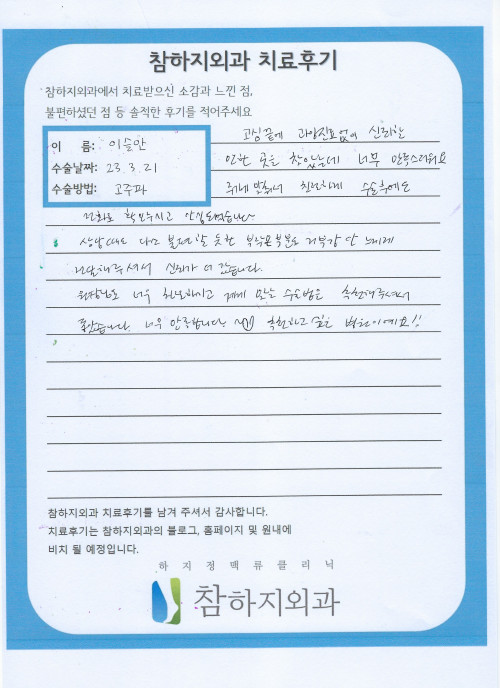 참하지외과 치료후기
참하지외과에서 치료받으신 소감과 느낀 점,
불편하셨던 점 등 솔직한 후기를 적어주세요
이 름: 이슬안
수술날짜: 23. 3. 21
수술방법: 고주파
고심 끝에 과잉진료 없이 신뢰할
만한 곳을 찾았는데 너무 만족스러워요
친절하게 수술후에도
전화로 확인해주시고 안심되었습니다
상담때도 다소 불편할 듯한 부작용부분도 거부감 안 느끼게
설명해주셔서 신뢰가 더 갔습니다.
원장님도 너무 친절하시고 제게 맞는 수술법을 추천해주셔서
좋았습니다. 너무 만족합니다 추천하고 싶은 병원이예요!!
참하지외과 치료후기를 남겨 주셔서 감사합니다.
치료후기는 참하지외과의 블로그, 홈페이지 및 원내에
비치 될 예정입니다.
하지정맥류클리닉
참하지외과